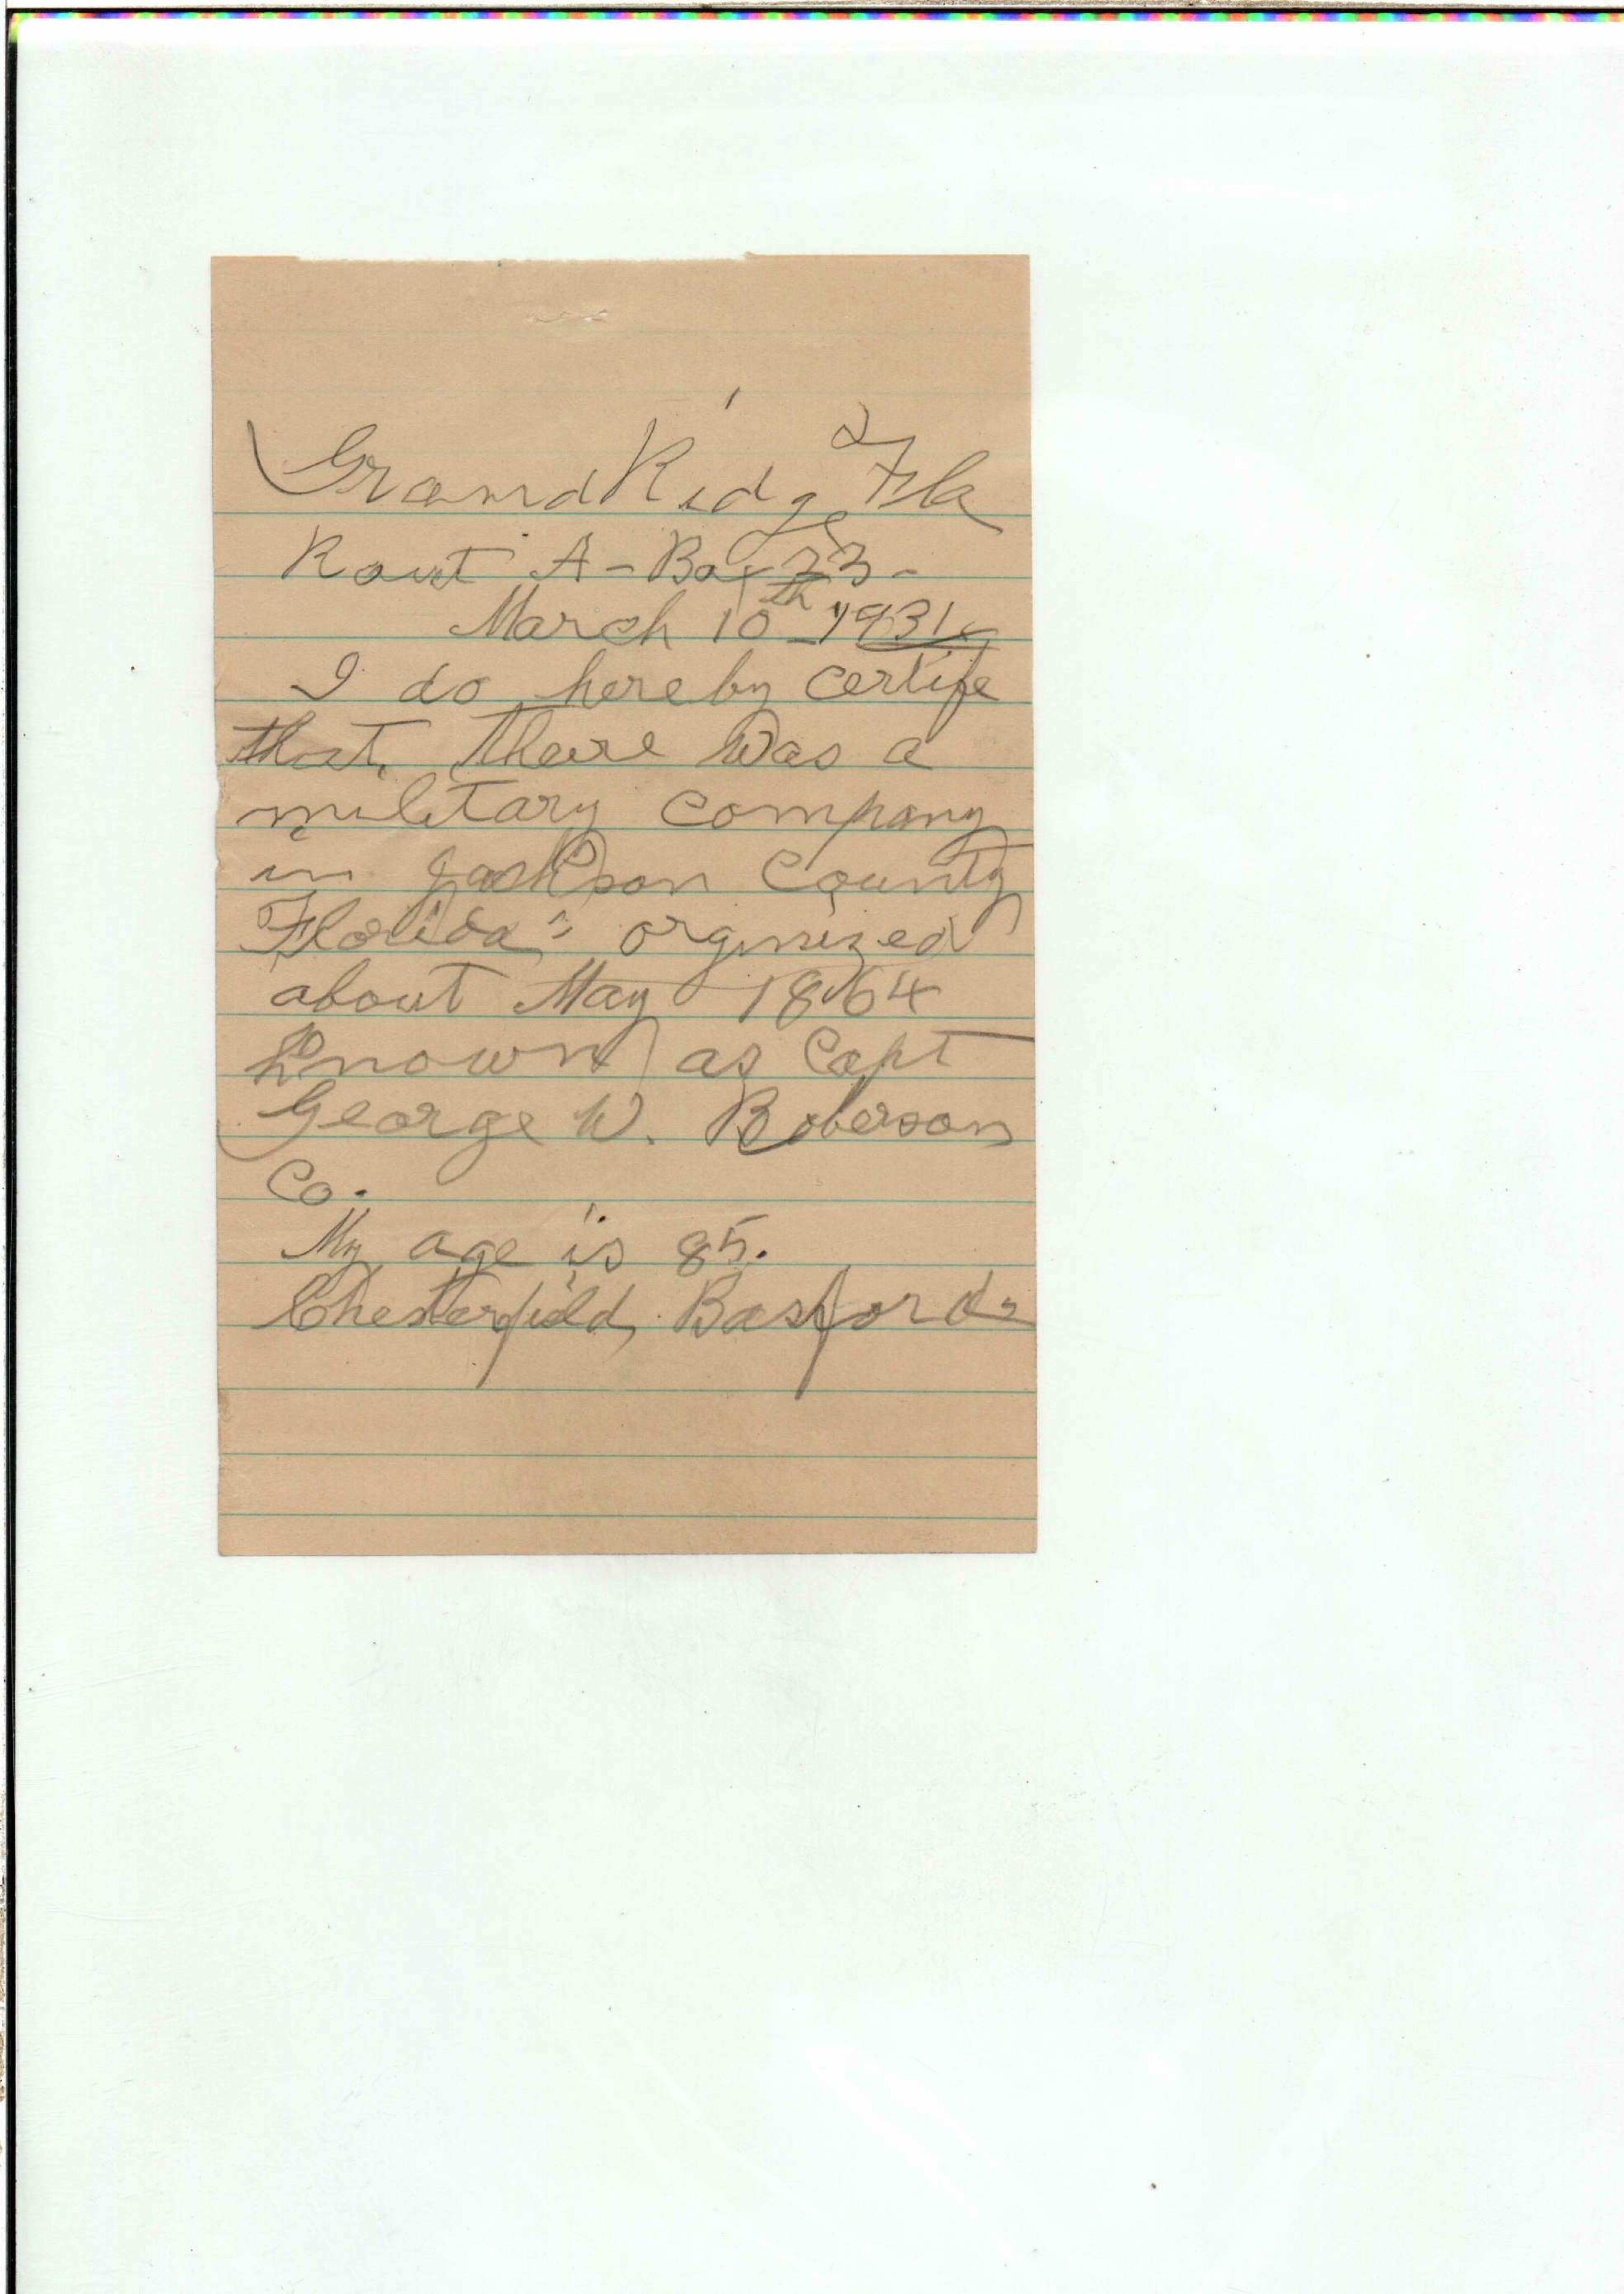 Grand Ridge Fla
Rout A - Box 23 -
March 10th 1931
I do hereby certife
that, theire was a
military company
in Jackson County
Florida" orgnized
about May 1864
Known as Capt
George W. Roberson
Co.
My age is 85.
Chesterfield, Basford